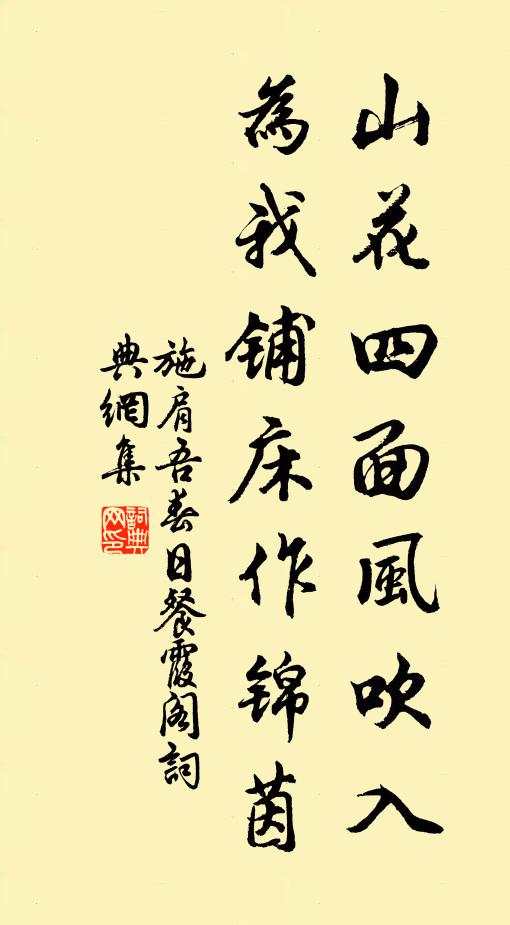 山花四面風吹入
為我鋪床作錦茵
施肩吾春日餐霞阁詞
典網集
詞典
网印